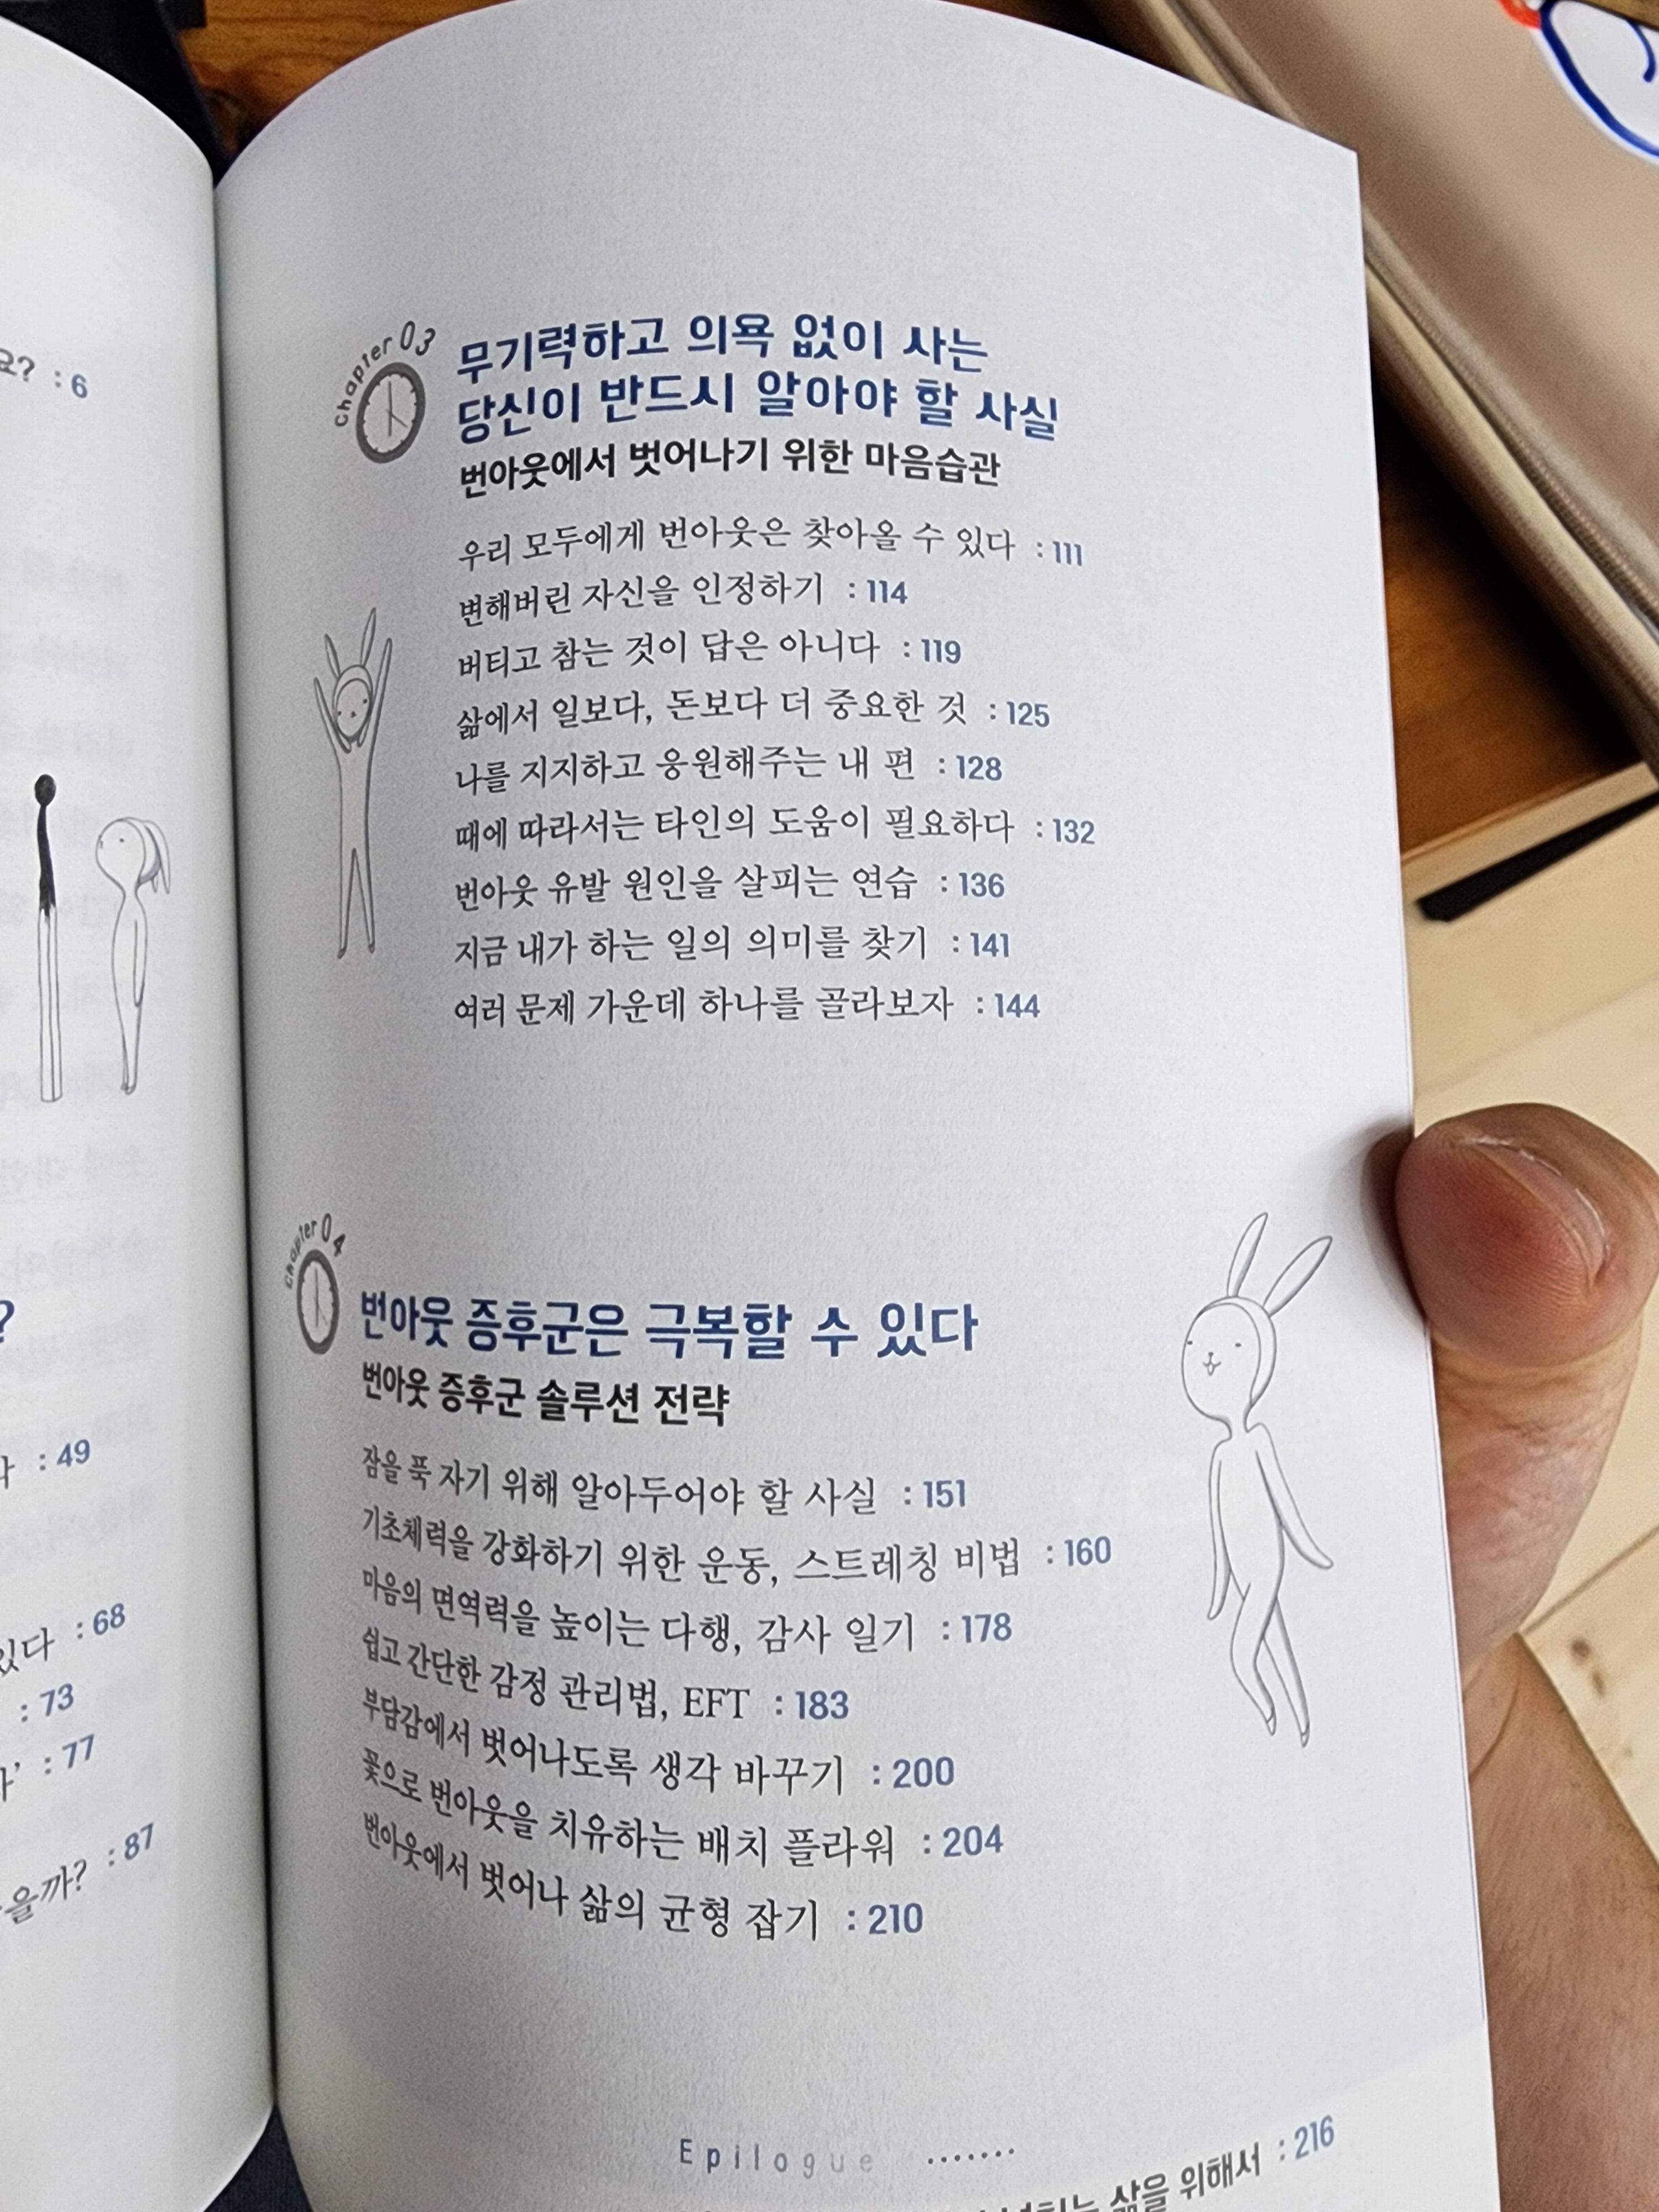 요? : 6
?
: 49
있다 : 68
: 73
: 77
을까? : 87
chapter 03
무기력하고 의욕 없이 사는
당신이 반드시 알아야 할 사실
번아웃에서 벗어나기 위한 마음습관
우리 모두에게 번아웃은 찾아올 수 있다 : 111
변해버린 자신을 인정하기 : 114
버티고 참는 것이 답은 아니다 : 119
삶에서 일보다, 돈보다 더 중요한 것 : 125
나를 지지하고 응원해주는 내 편 : 128
때에 따라서는 타인의 도움이 필요하다 : 132
번아웃 유발 원인을 살피는 연습 : 136
지금 내가 하는 일의 의미를 찾기 : 141
여러 문제 가운데 하나를 골라보자 : 144
chapter 04
번아웃 증후군은 극복할 수 있다
번아웃 증후군 솔루션 전략
잠을 푹 자기 위해 알아두어야 할 사실 : 151
기초체력을 강화하기 위한 운동, 스트레칭 비법 : 160
마음의 면역력을 높이는 다행, 감사 일기 : 178
쉽고 간단한 감정 관리법, EFT : 183
부담감에서 벗어나도록 생각 바꾸기 : 200
꽃으로 번아웃을 치유하는 배치 플라워 : 204
번아웃에서 벗어나 삶의 균형 잡기 : 210
Epilogue .......
삶을 위해서 : 216